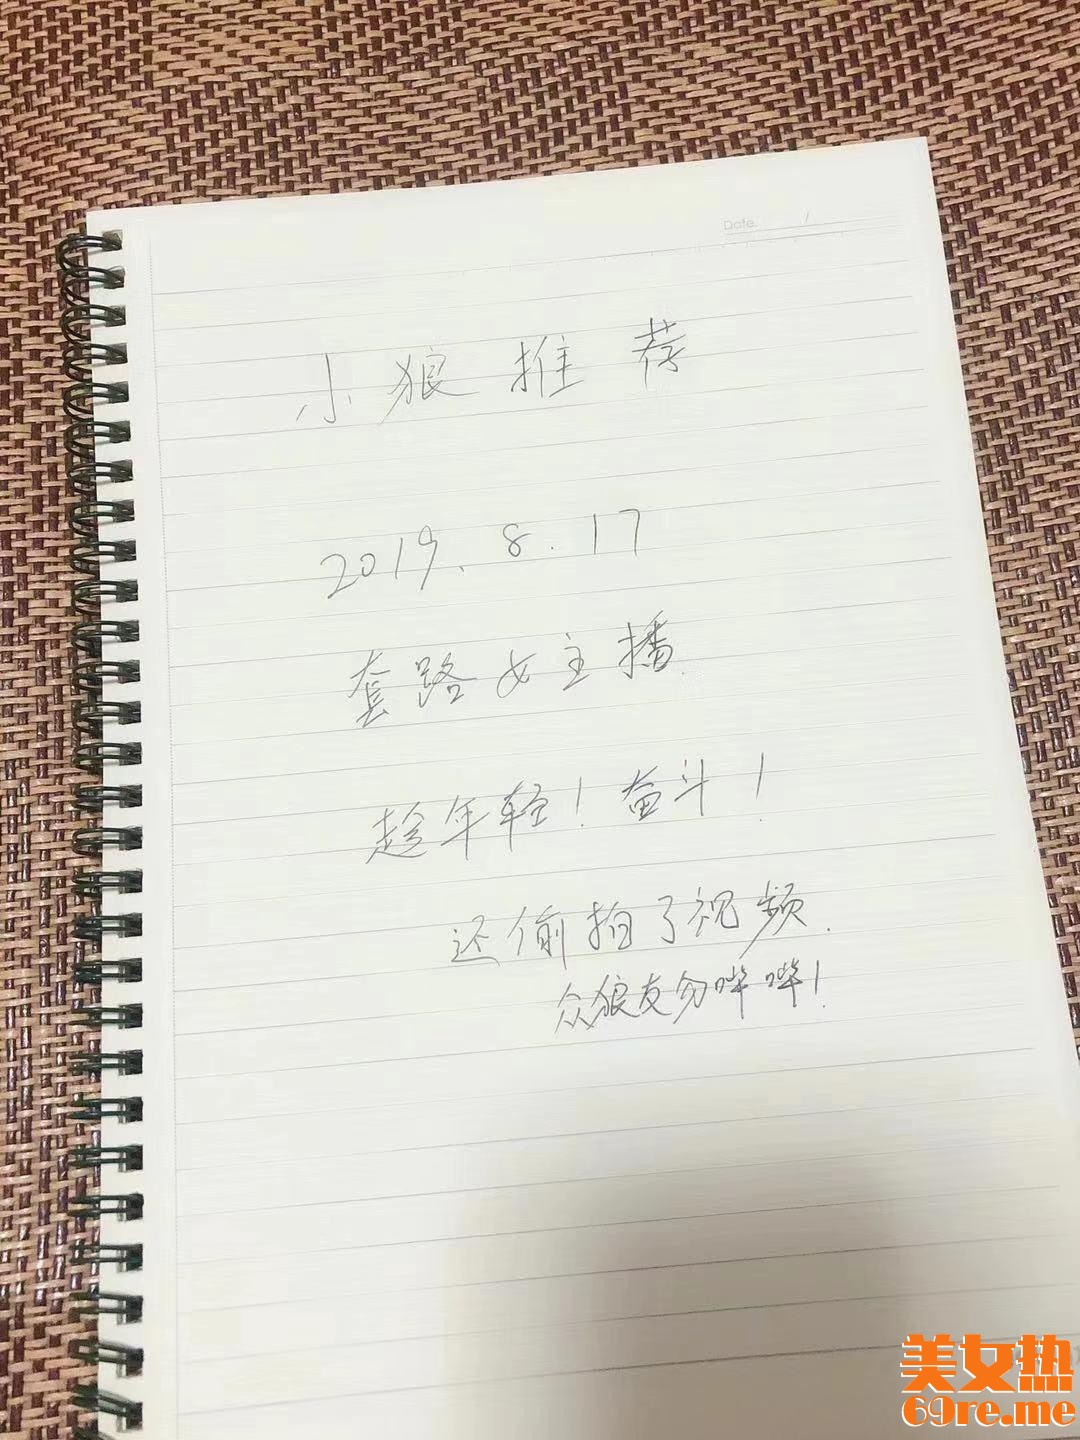 Date.
小狼推荐
2019.8.17
套路女主播.
趁年轻！奋斗！
还偷拍了视频.
众狼友勿哔哔！
美女热
69re.me